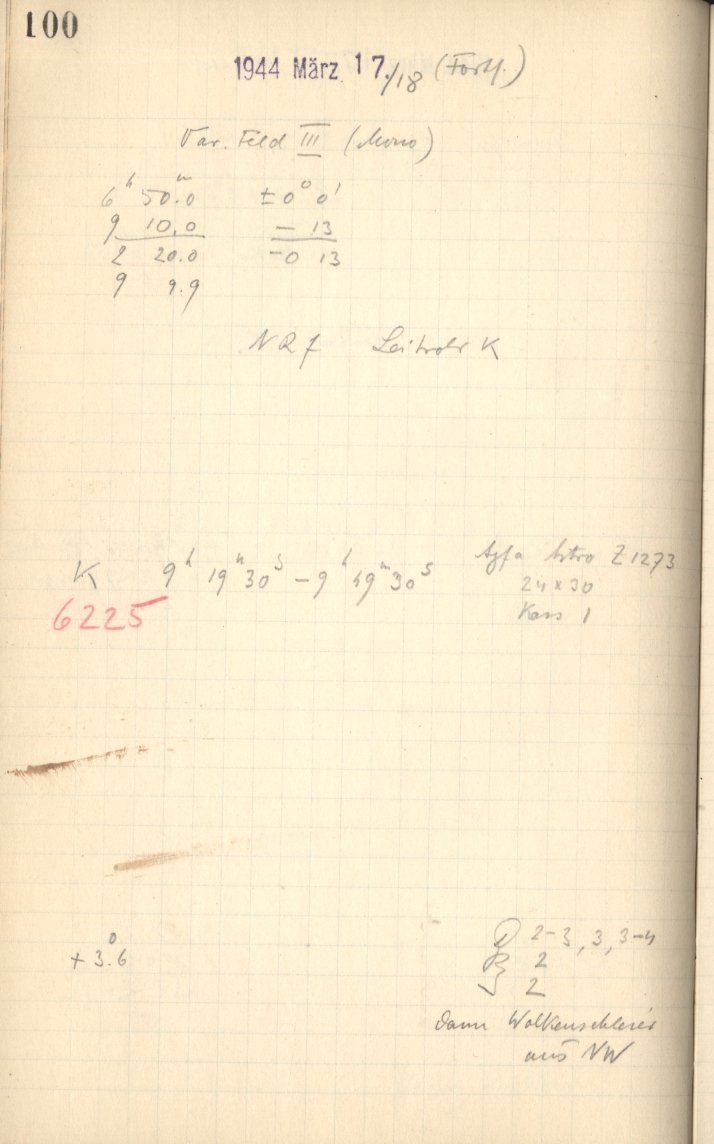 100
1944 März 17./18 (Forts.)
Var. Feld III (Mono)
6h 50m.0 ±0° 0'
9 10.0 − 13
2 20.0 −0 13
9 9.9
Leitrohr K
K 9h 19m 30s − 9h 49m 30s Agfa Astro Z1273
6225 24 x 30
Kass 1
+3°.6
D 2-3, 3, 3-4
R 2
S 2
dann Wolkenschleier
aus NW